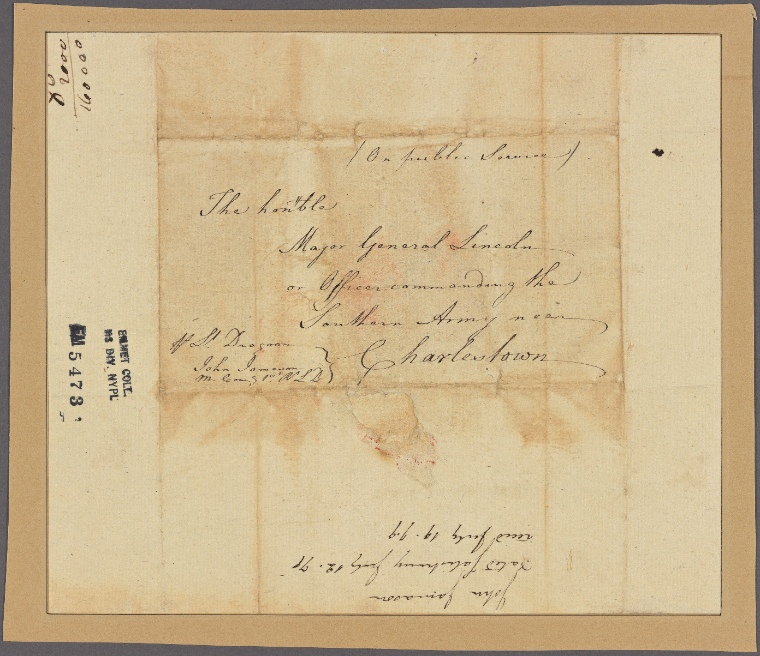 (On public Service)
The hon'ble
Major General Lincoln
or Officer commanding the
Southern Army near
Charlestown
Lt Dragoon
John Jameson
EMMET COLL.
MS DIV. NYPL
EM 5473
John Jameson
Dated Salisbury July 12. 79
recd July 19. 79